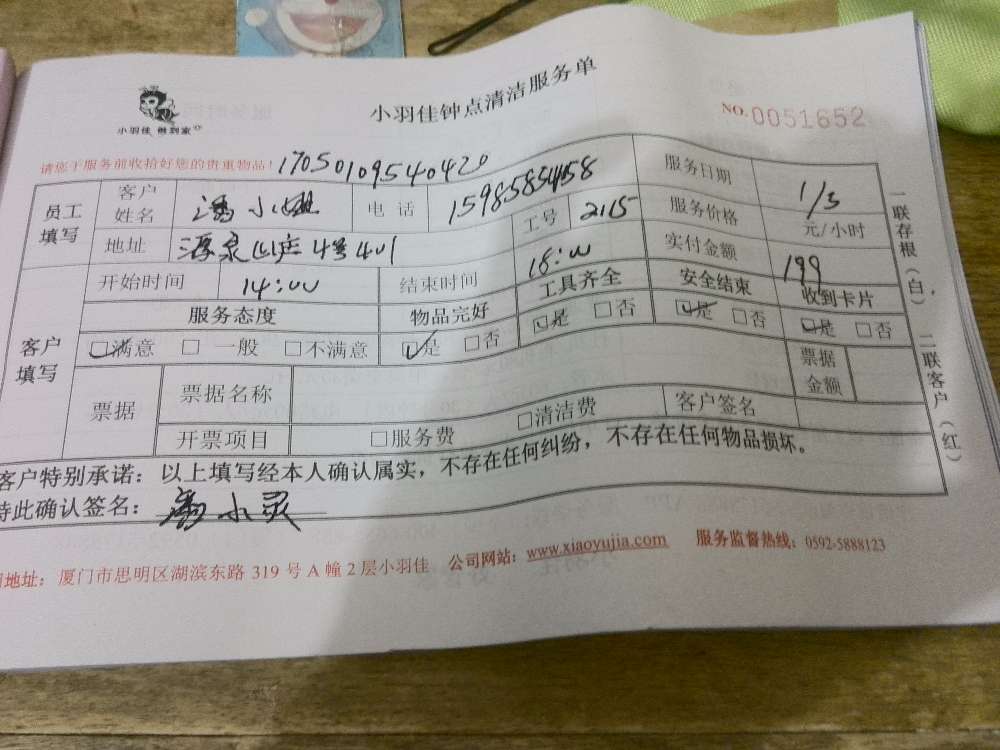 小羽佳 做到家
小羽佳钟点清洁服务单
NO.0051652
请您于服务前收拾好您的贵重物品！
员工填写 客户姓名 潘小姐 电话 服务日期 1/5
地址 4号401 工号 2115 服务价格 元/小时
客户填写 开始时间 14:00 结束时间 18:00 实付金额 199
服务态度 物品完好 工具齐全 安全结束 收到卡片
□满意 □一般 □不满意 □是 □否 □是 □否 □是 □否 □是 □否
票据 票据名称 票据金额
开票项目 □服务费 □清洁费 客户签名
客户特别承诺：以上填写经本人确认属实，不存在任何纠纷，不存在任何物品损坏。
特此确认签名：潘小灵
地址：厦门市思明区湖滨东路 319 号 A 幢 2 层小羽佳 公司网站：www.xiaoyujia.com 服务监督热线：0592-5888123
一联存根（白）、二联客户（红）